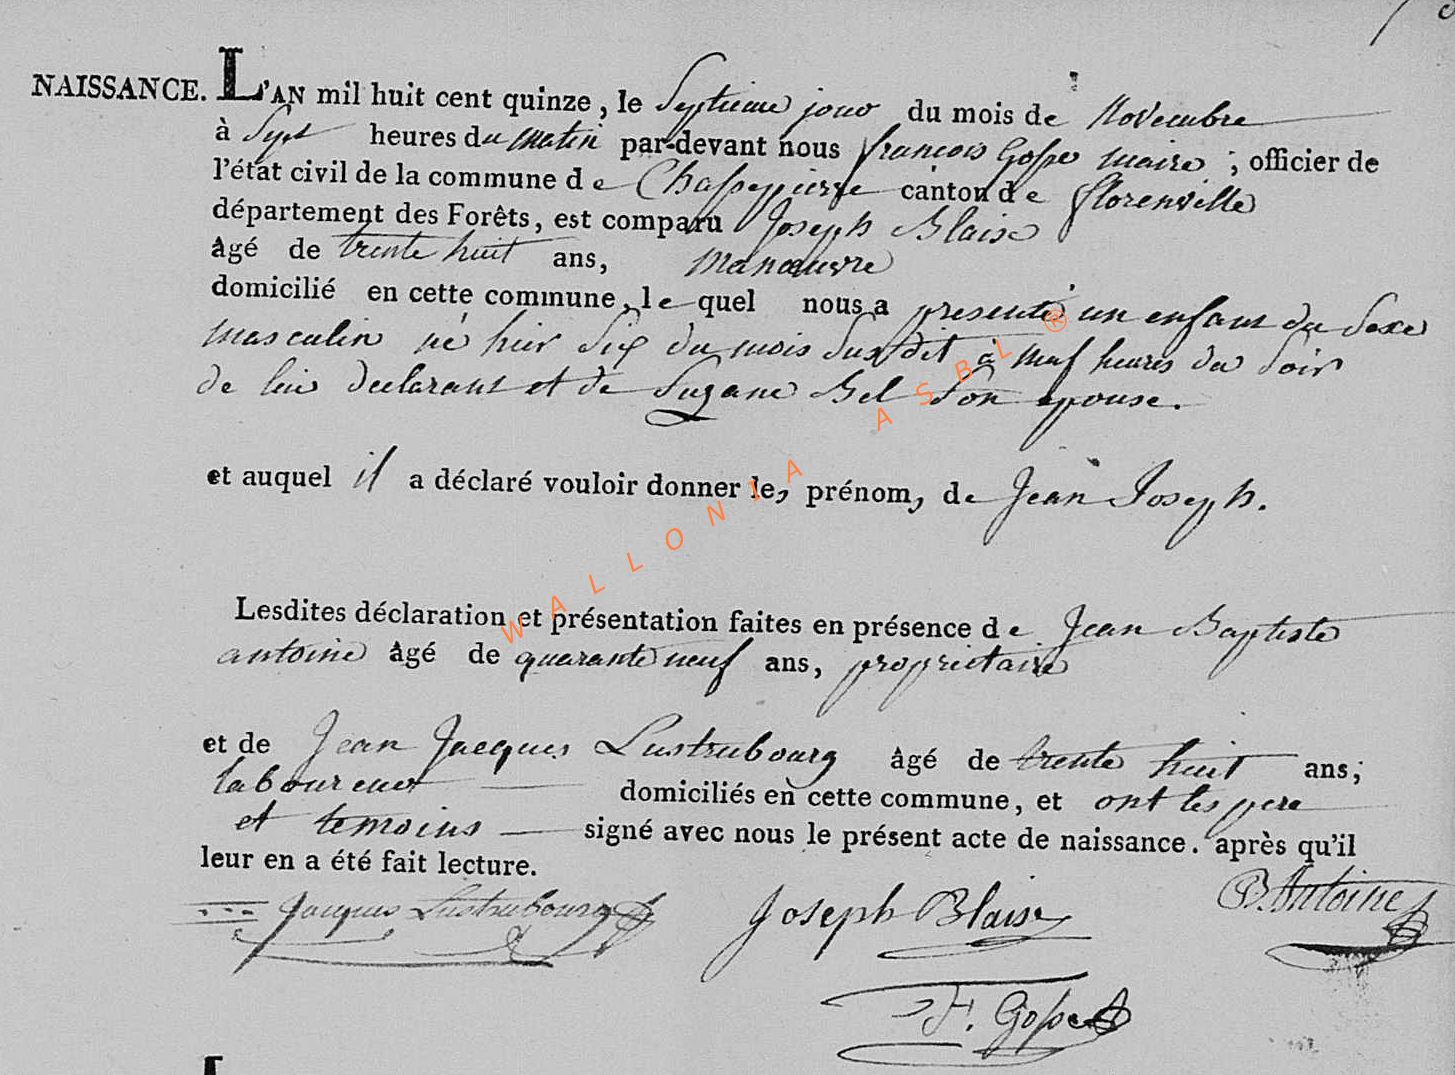 NAISSANCE. L'AN mil huit cent quinze, le Septieme jour du mois de Novembre
à Sept heures du matin par-devant nous françois Gosse maire ; officier de
l'état civil de la commune de Chassepierre canton de florenville
département des Forêts, est comparu Joseph Blaise
âgé de trente huit ans, manœuvre
domicilié en cette commune, le quel nous a presenté un enfant du Sexe
masculin né hier Six du mois Susdit à neuf heures du Soir
de lui declarant et de Suzane Bel Son epouse.
et auquel il a déclaré vouloir donner les prénoms de Jean Joseph.
Lesdites déclaration et présentation faites en présence de Jean Baptiste
antoine âgé de quarante neuf ans, proprietaire
et de Jean Jacques Lustrubourg âgé de trente huit ans;
laboureur domiciliés en cette commune, et ont les pere
et temoins signé avec nous le présent acte de naissance. après qu'il
leur en a été fait lecture.
Jacques Lustrubourg Joseph Blaise B. Antoine
F. Gosse
WALLONIA ASBL ®